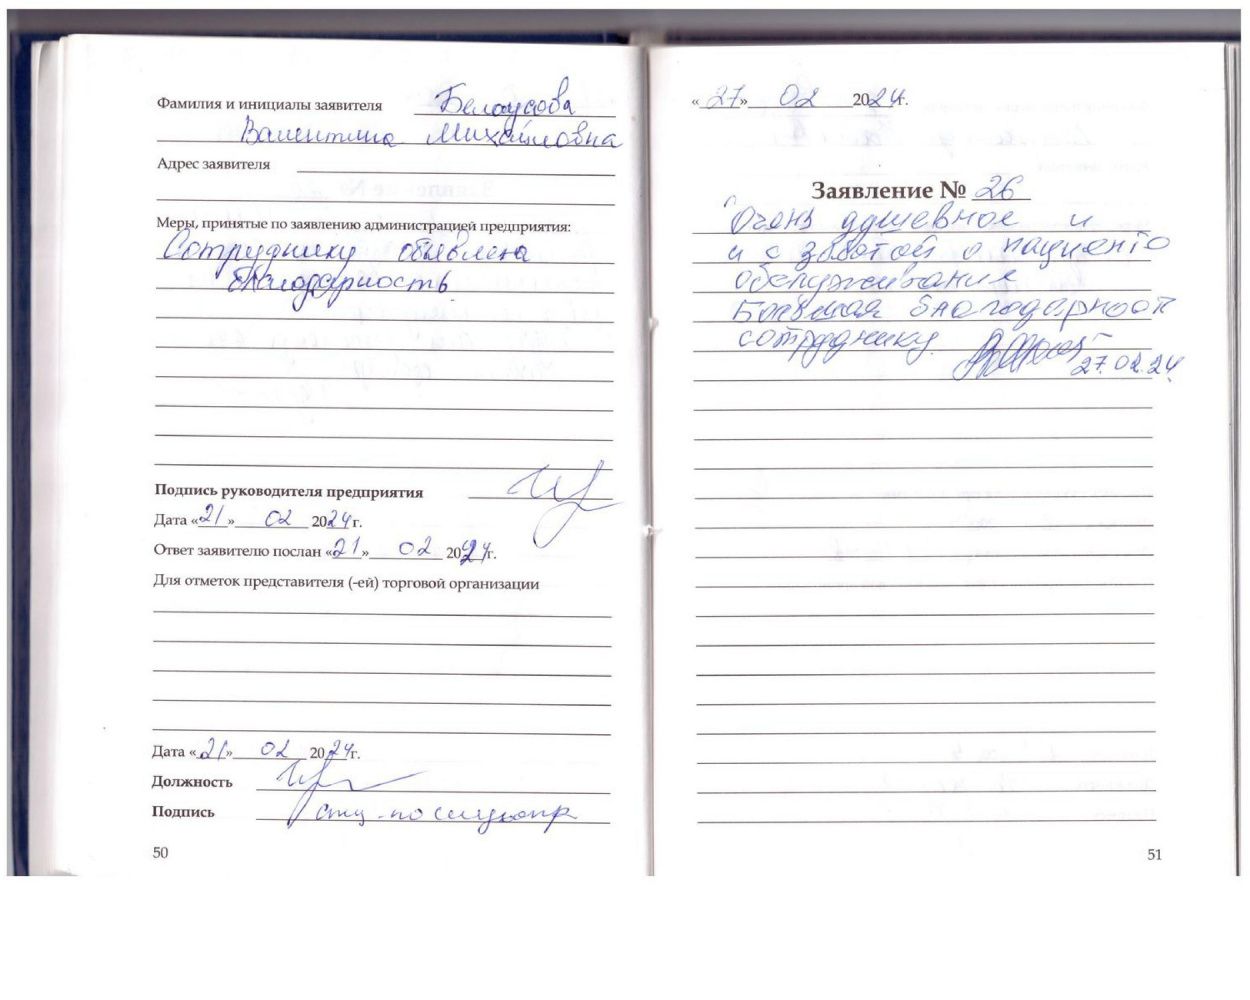 Фамилия и инициалы заявителя Белоусова
Валентина Михайловна
Адрес заявителя
Меры, принятые по заявлению администрацией предприятия:
Сотруднику объявлена
благодарность
Подпись руководителя предприятия
Дата «21» 02 2024г.
Ответ заявителю послан «21» 02 2024г.
Для отметок представителя (-ей) торговой организации
Дата «21» 02 2024г.
Должность
Подпись
50
«27» 02 2024г.
Заявление № 26
Очень душевное и
и с заботой о пациенто
обслуживание
Большая благодарност
сотруднику.
27.02.24
51